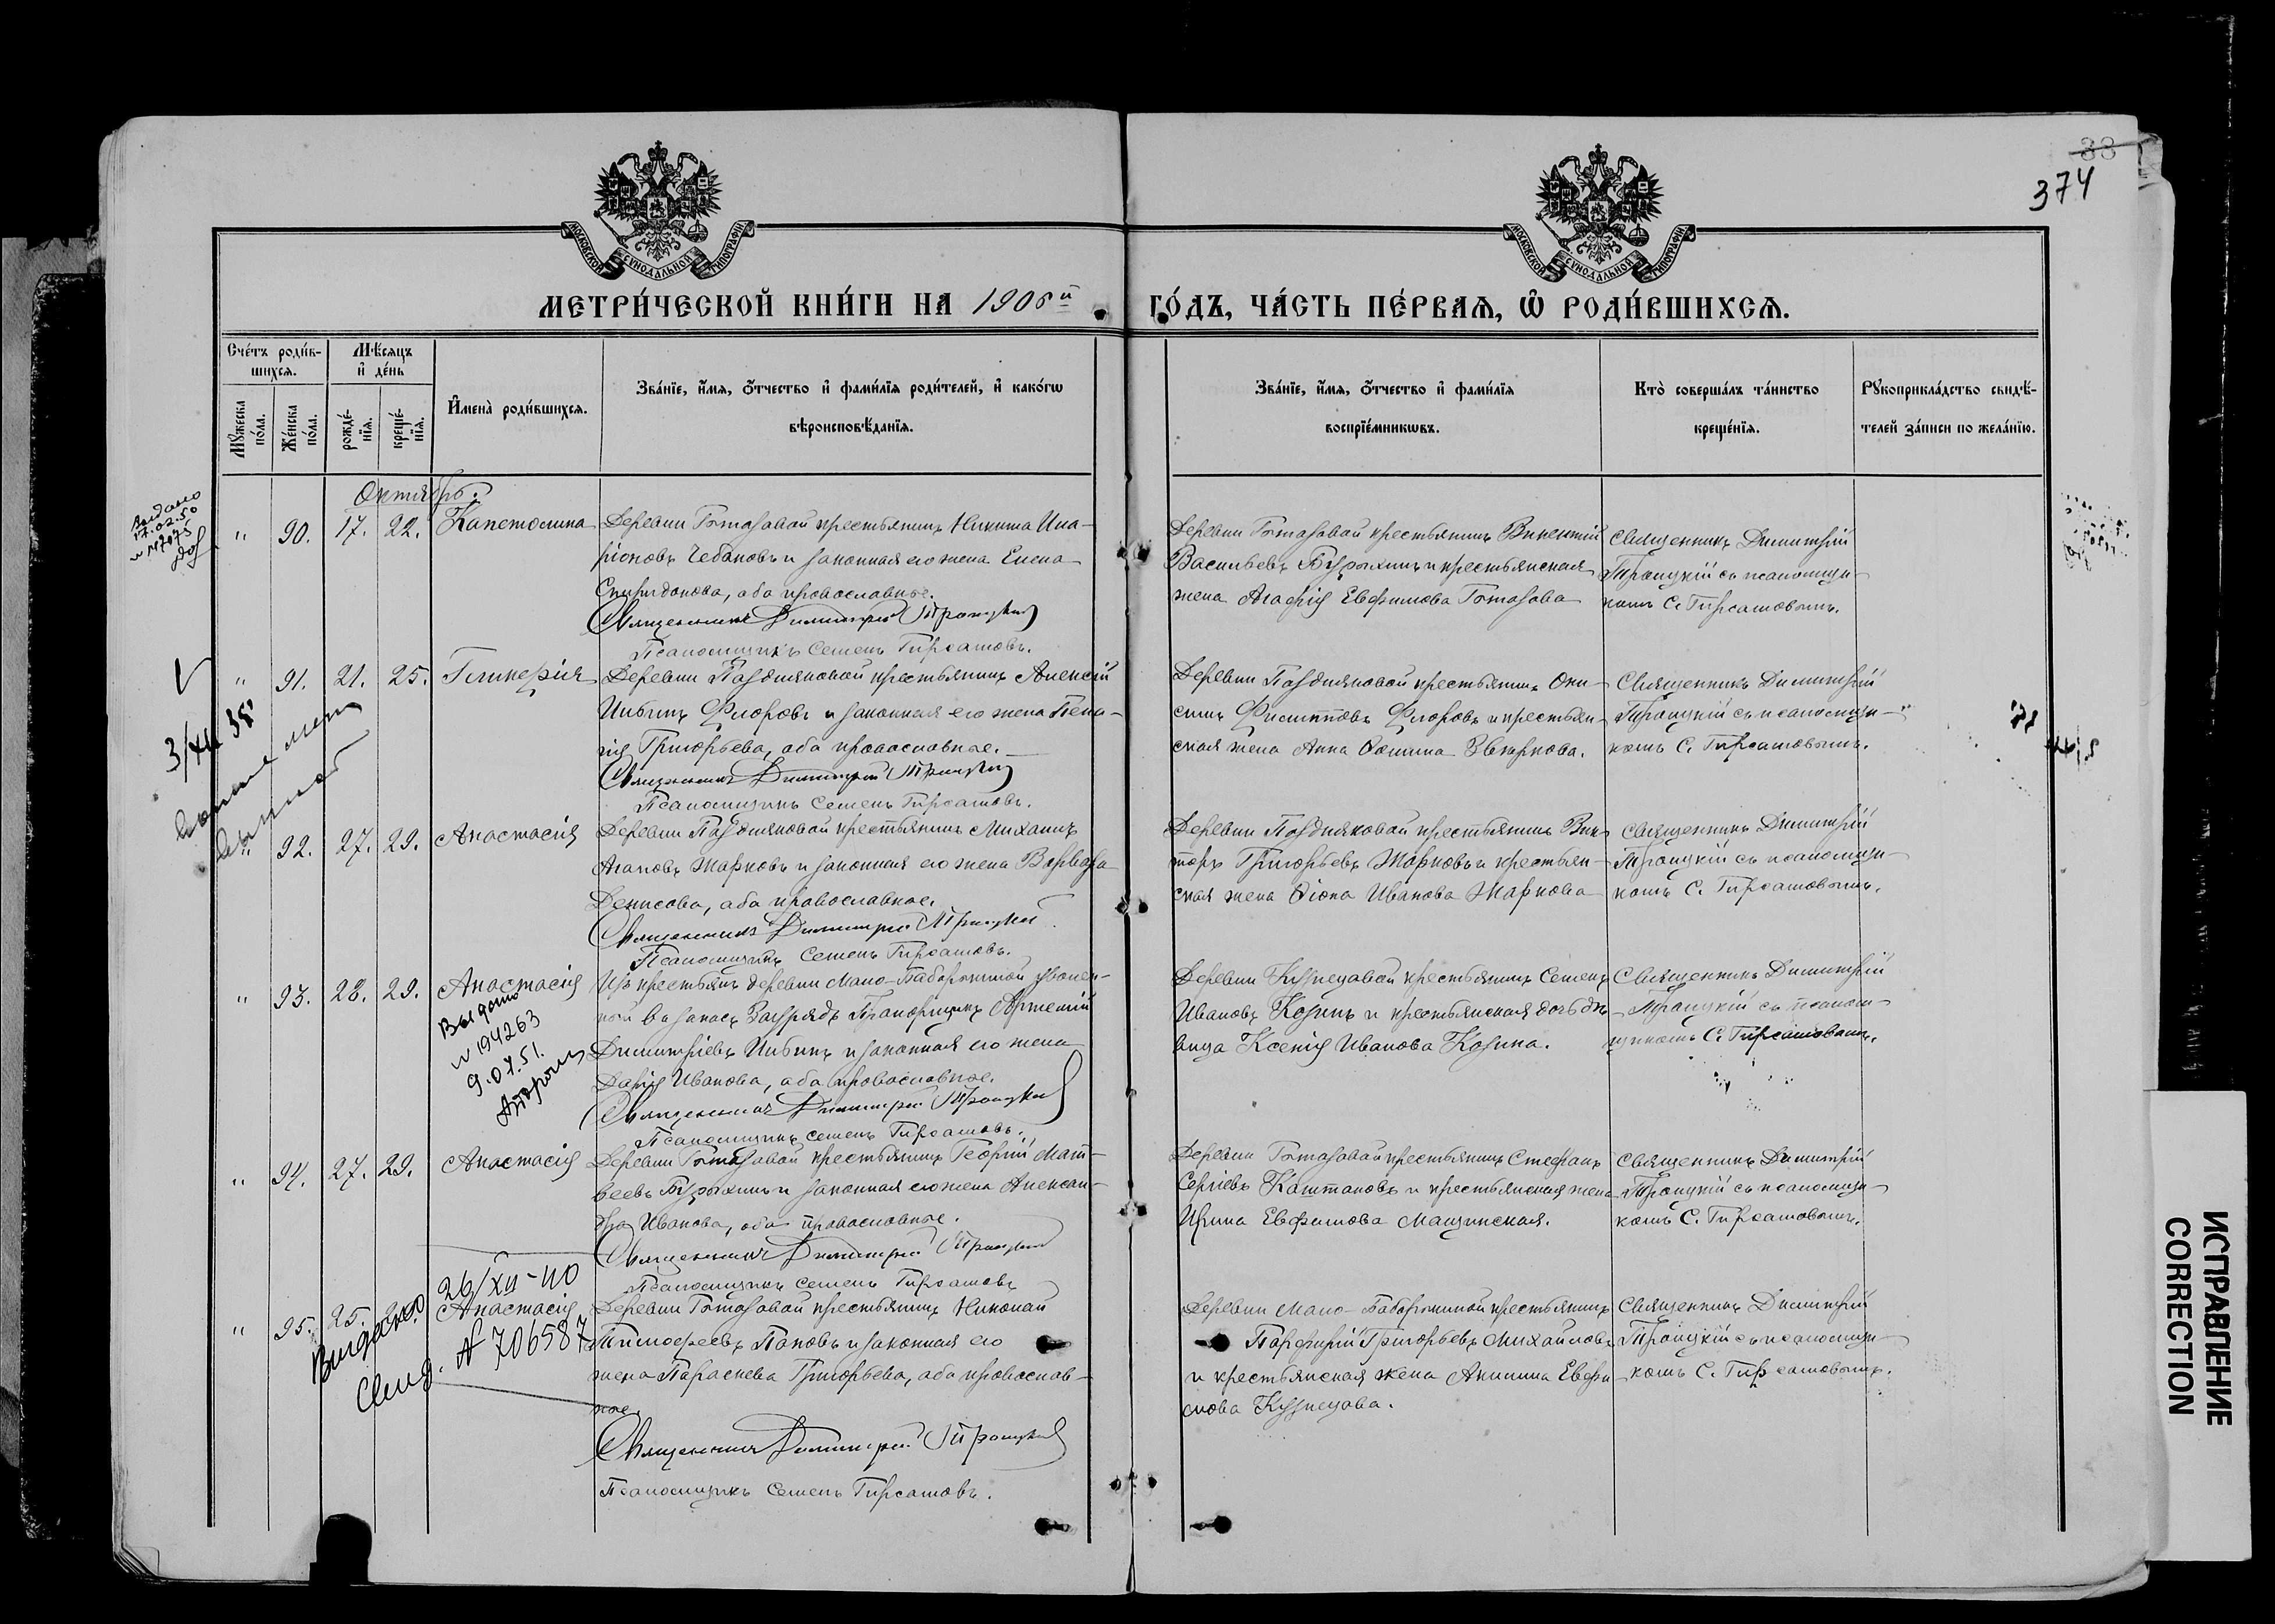 33
374
МОСКОВСКОЙ СѴНОДАЛЬНОЙ ТИПОГРАФІИ
МОСКОВСКОЙ СѴНОДАЛЬНОЙ ТИПОГРАФІИ
МЕТРИ́ЧЕСКОЙ КНИ́ГИ НА 1906й ГО́ДЪ, ЧА́СТЬ ПЕ́РВАѦ, Ѡ҆ РОДИ́ВШИХСѦ.
Сче́тъ роди́в-
шихсѧ.
Мѣ́сѧцъ
и҆ де́нь
Мꙋ́жеска
по́ла.
Же́нска
по́ла.
рожде́-
нїѧ.
креще́-
нїѧ.
И҆мена̀ роди́вшихсѧ.
Зва́нїе, и҆́мѧ, ѻ҆́тчество и҆ фами́лїѧ роди́телей, и҆ како́гѡ
вѣроисповѣ́данїѧ.
Зва́нїе, и҆́мѧ, ѻ҆́тчество и҆ фами́лїѧ
воспрїе́мникѡвъ.
Кто̀ соверша́лъ та́инство
креще́нїѧ.
Рꙋкоприкла́дство свидѣ́-
телей за́писи по жела́нїю.
Октябрь.
" 90. 17. 22. Капетолина
Деревни Ботазовой крестьянинъ Никита Ила-
ріоновъ Чебановъ и законная его жена Елена
Спиридонова, оба православные.
Священникъ Димитрій Троицкій
Псаломщикъ Семенъ Гирсамовъ.
Деревни Ботазовой крестьянинъ Викентій
Васильевъ Бурыхинъ и крестьянская
жена Агафія Евфимова Ботазова
Священникъ Димитрій
Троицкій съ псаломщи-
комъ С. Гирсамовымъ.
" 91. 21. 25. Гликерія
Деревни Поздняковой крестьянинъ Алексій
Флоровъ и законная его жена Пела-
гія Григорьева, оба православные.
Священникъ Димитрій Троицкій
Псаломщикъ Семенъ Гирсамовъ.
Деревни Поздняковой крестьянинъ Они-
симъ Филипповъ Флоровъ и крестьян-
ская жена Анна Ѳомина
Священникъ Димитрій
Троицкій съ псаломщи-
комъ С. Гирсамовымъ.
3/XII 35
" 92. 27. 29. Анастасія
Деревни Поздняковой крестьянинъ Михаилъ
Агаповъ Жарковъ и законная его жена Варвара
Денисова, оба православные.
Священникъ Димитрій Троицкій
Псаломщикъ Семенъ Гирсамовъ.
Деревни Поздняковой крестьянинъ Вик-
торъ Григорьевъ Жарковъ и крестьян-
ская жена Ѳіона Иванова Жаркова
Священникъ Димитрій
Троицкій съ псаломщи-
комъ С. Гирсамовымъ.
" 93. 28. 29. Анастасія
Выдано
N 194263
9.07.51.
Изъ крестьянъ деревни Мало-Бабарыкиной уволен-
ный въ запасъ Зауряд Прапорщикъ Артемій
Димитріевъ и законная его жена
Дарія Иванова, оба православные.
Священникъ Димитрій Троицкій
Псаломщикъ Семенъ Гирсамовъ.
Деревни Кузнецовой крестьянинъ Семенъ
Ивановъ Козинъ и крестьянская дочь дѣ-
вица Ксенія Иванова Козина.
Священникъ Димитрій
Троицкій съ псалом-
щикомъ С. Гирсамовымъ.
" 94. 27. 29. Анастасія
Деревни Ботазовой крестьянинъ Георгій Мат-
веевъ Бурыхинъ и законная его жена Алексан-
дра Иванова, оба православные.
Священникъ Димитрій Троицкій
Псаломщикъ Семенъ Гирсамовъ
Деревни Ботазовой крестьянинъ Стефанъ
Сергіевъ Каштановъ и крестьянская жена
Ирина Евфимова Мащинская.
Священникъ Димитрій
Троицкій съ псаломщи-
комъ С. Гирсамовымъ.
26/XII-40
" 95. 25. Анастасія
Выдано
Свид. N 706587
Деревни Ботазовой крестьянинъ Николай
Тимофеевъ Поповъ и законная его
жена Параскева Григорьева, оба православ-
ные.
Священникъ Димитрій Троицкій
Псаломщикъ Семенъ Гирсамовъ.
Деревни Мало-Бабарыкиной крестьянинъ
Порфирій Григорьевъ Михайловъ
и крестьянская жена Акилина Евфи-
мова Кузнецова.
Священникъ Димитрій
Троицкій съ псаломщи-
комъ С. Гирсамовымъ.
ИСПРАВЛЕНИЕ
CORRECTION